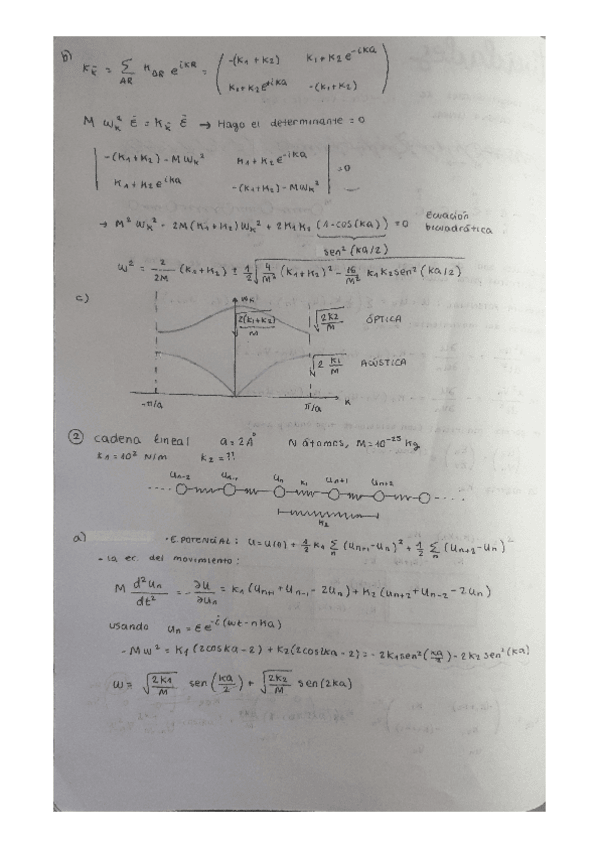 b) K_k⃗ = Σ_ΔR K_ΔR e^{ikR} = ( -(K1+K2)   K1+K2 e^{-ika}
K1+K2 e^{ika}   -(K1+K2) )
M ω_k² ε̂ = K_k⃗ ε̂ → Hago el determinante = 0
| -(K1+K2) - Mω_k²   K1+K2 e^{-ika} |
| K1+K2 e^{ika}   -(K1+K2) - Mω_k² | = 0
→ M² ω_k² - 2M(K1+K2)ω_k² + 2K1K2 (1-cos(ka)) = 0   Ecuación bicuadrática
sen²(ka/2)
ω² = 2/2M (K1+K2) ± 1/2 √(4/M² (K1+K2)² - 16/M² K1K2 sen²(ka/2))
c) ωk
√(2(K1+K2)/M)   √(2K2/M)   ÓPTICA
√(2 K1/M)   ACÚSTICA
-π/a   π/a   K
② cadena lineal   a=2Å   N átomos, M=10^{-25} kg
K1=10² N/m   K2=??
u_{n-2}   u_{n-1}   u_n   K1   u_{n+1}   u_{n+2}
K2
a) · E. POTENCIAL: U=U(0) + 1/2 K1 Σ_n (u_{n+1}-u_n)² + 1/2 Σ_n (u_{n+2}-u_n)²
- La ec. del movimiento:
M d²u_n/dt² = -∂U/∂u_n = K1(u_{n+1}+u_{n-1}-2u_n) + K2(u_{n+2}+u_{n-2}-2u_n)
usando u_n = ε e^{-i(ωt-nka)}
-Mω² = K1(2coska-2) + K2(2cos2ka-2) = -2K1sen²(ka/2) - 2K2sen²(ka)
ω = √(2K1/M) sen(ka/2) + √(2K2/M) sen(2ka)